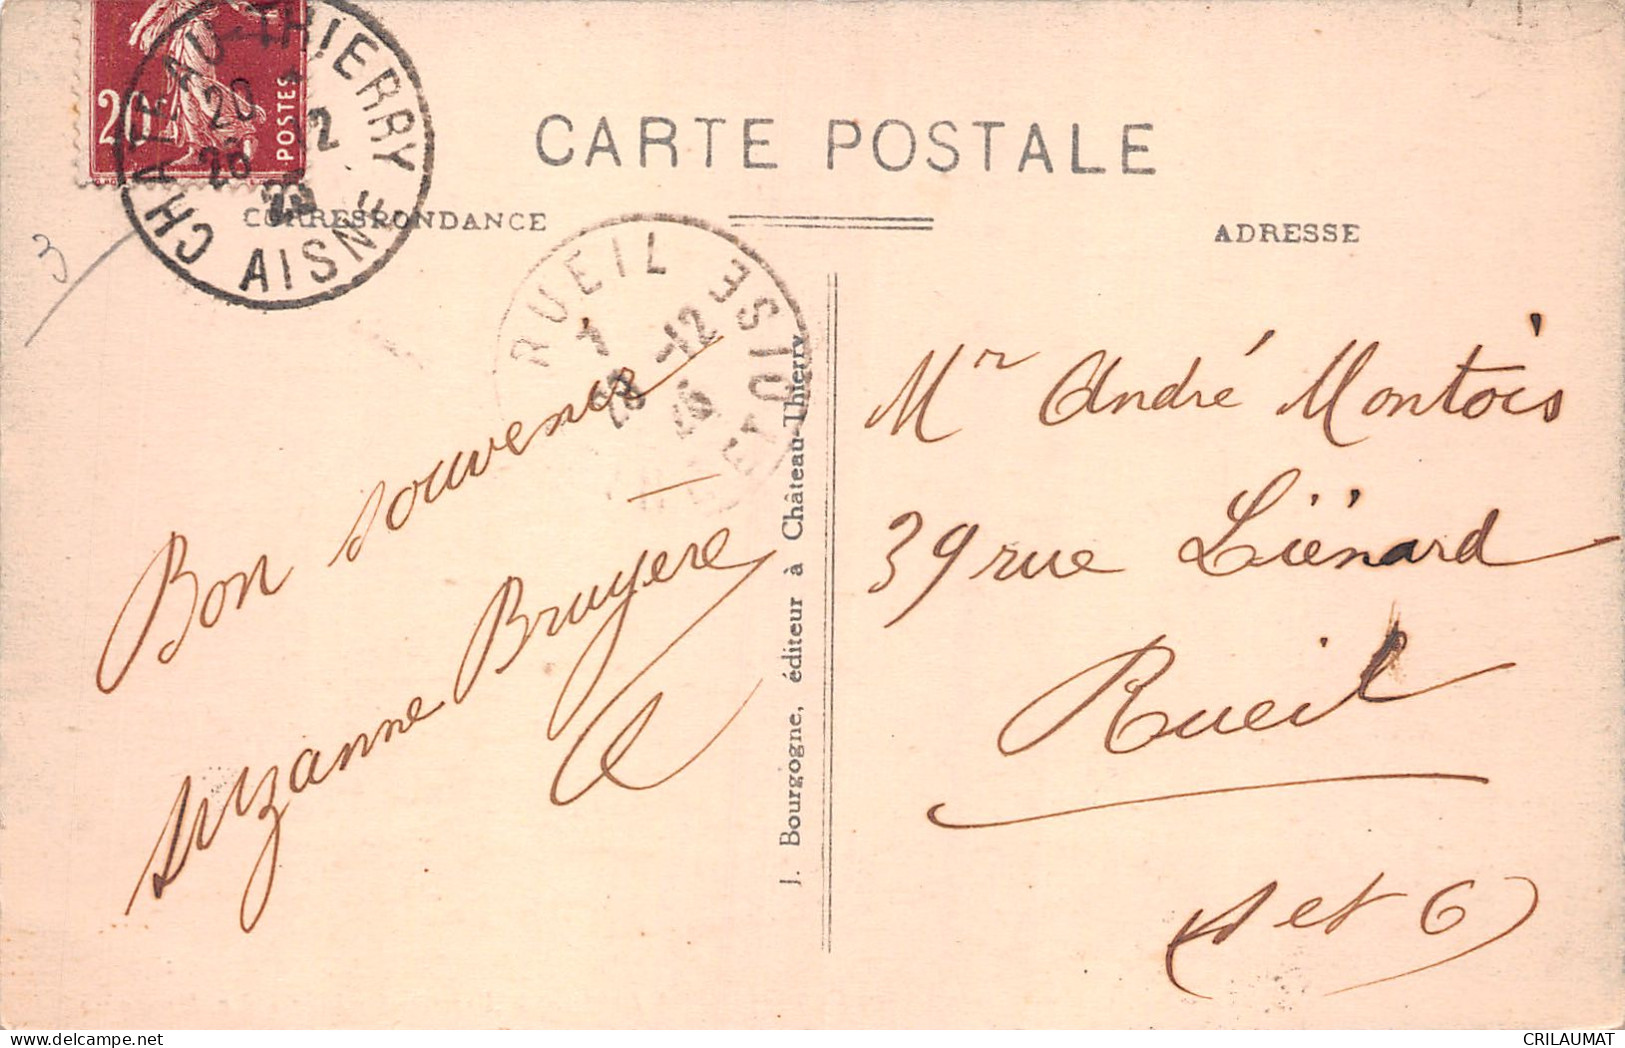 20
POSTES
CHATEAU-THIERRY
20
26 -12
AISNE
3
CARTE POSTALE
CORRESPONDANCE
ADRESSE
RUEIL
28 -12
SEINE ET OISE
Bon souvenir
Suzanne Bruyere
J. Bourgogne, éditeur à Château-Thierry
Mr André Montois
39 rue Liénard
Rueil
S et O
CRILAUMAT